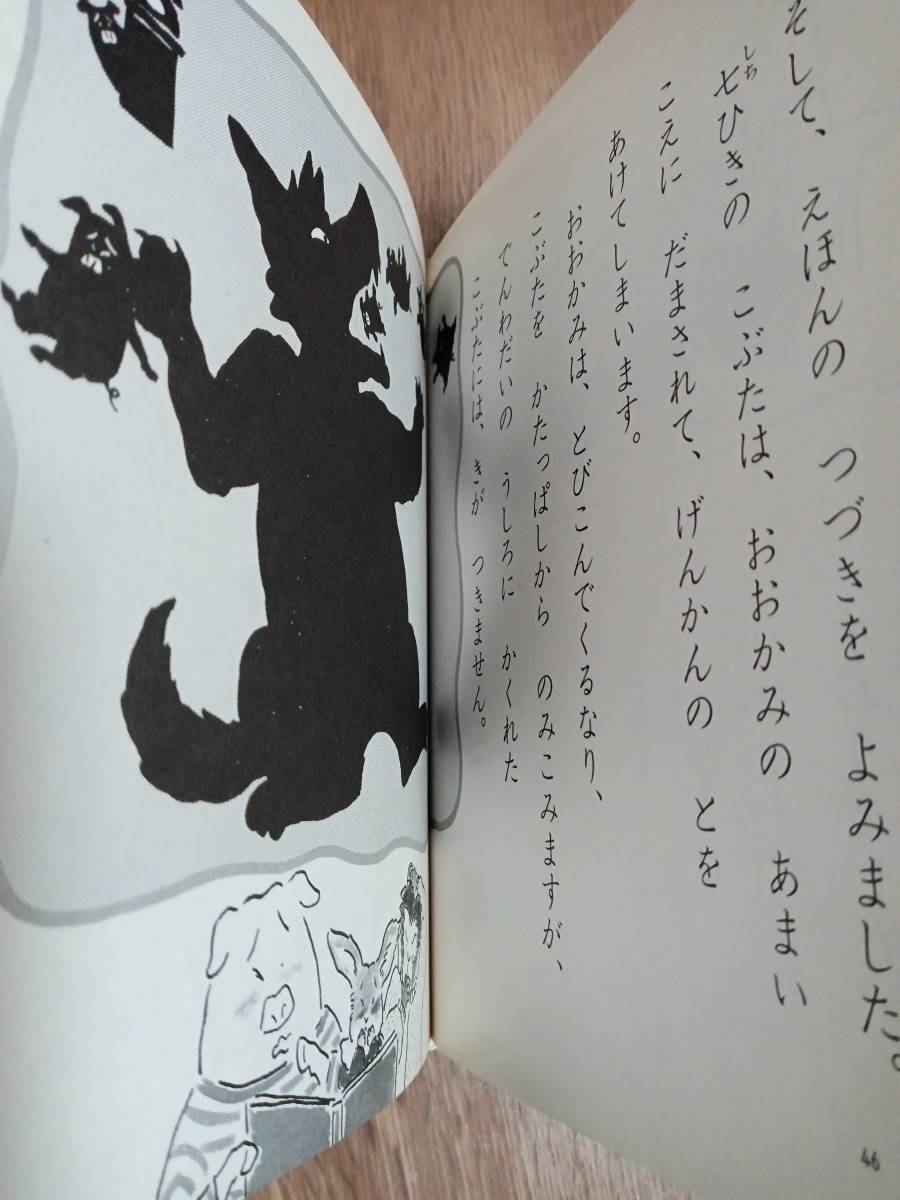 そして、 えほんの つづきを よみました。
しち
七ひきの こぶたは、 おおかみの あまい
こえに だまされて、 げんかんの とを
あけてしまいます。
おおかみは、 とびこんでくるなり、
こぶたを かたっぱしから のみこみますが、
でんわだいの うしろに かくれた
こぶたには、 きが つきません。
46